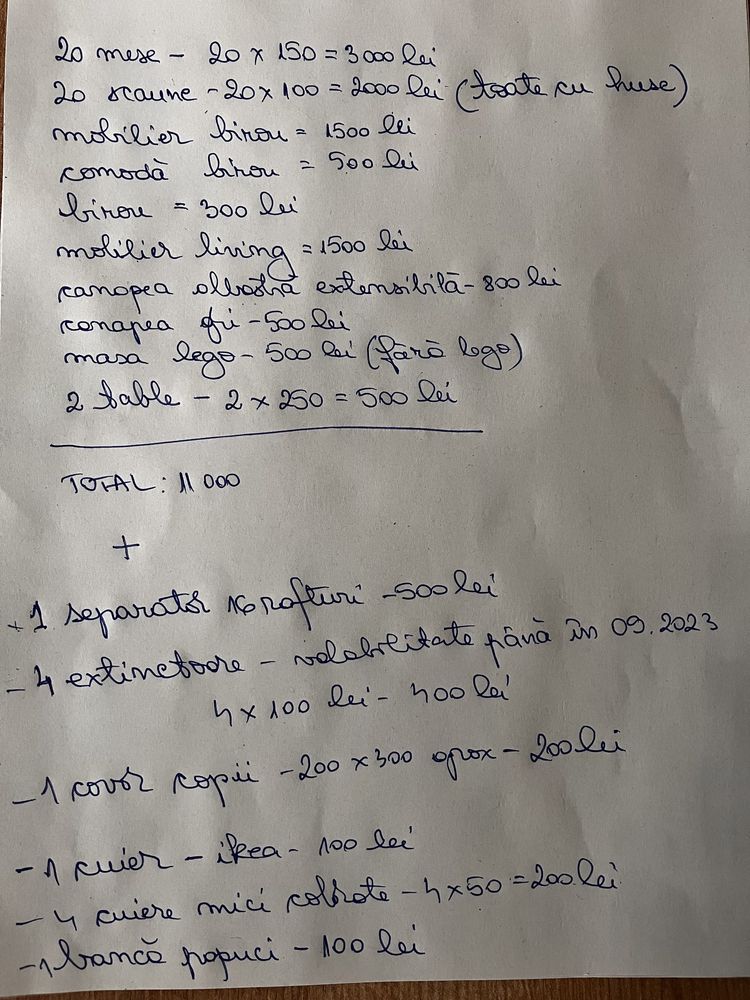 20 mese - 20 x 150 = 3000 lei
20 scaune - 20 x 100 = 2000 lei (toate cu huse)
mobilier birou = 1500 lei
comodă birou = 500 lei
birou = 300 lei
mobilier living = 1500 lei
canapea albastră extensibilă - 800 lei
canapea gri - 500 lei
masa lego - 500 lei (fără lego)
2 table - 2 x 250 = 500 lei
TOTAL: 11 000
+
+ 1 separator 16 rafturi - 500 lei
- 4 extinctoare - valabilitate până în 09.2023
4 x 100 lei - 400 lei
- 1 covor copii - 200 x 300 aprox - 200 lei
- 1 cuier - ikea - 100 lei
- 4 cuiere mici colorate - 4 x 50 = 200 lei
- 1 bancă papuci - 100 lei